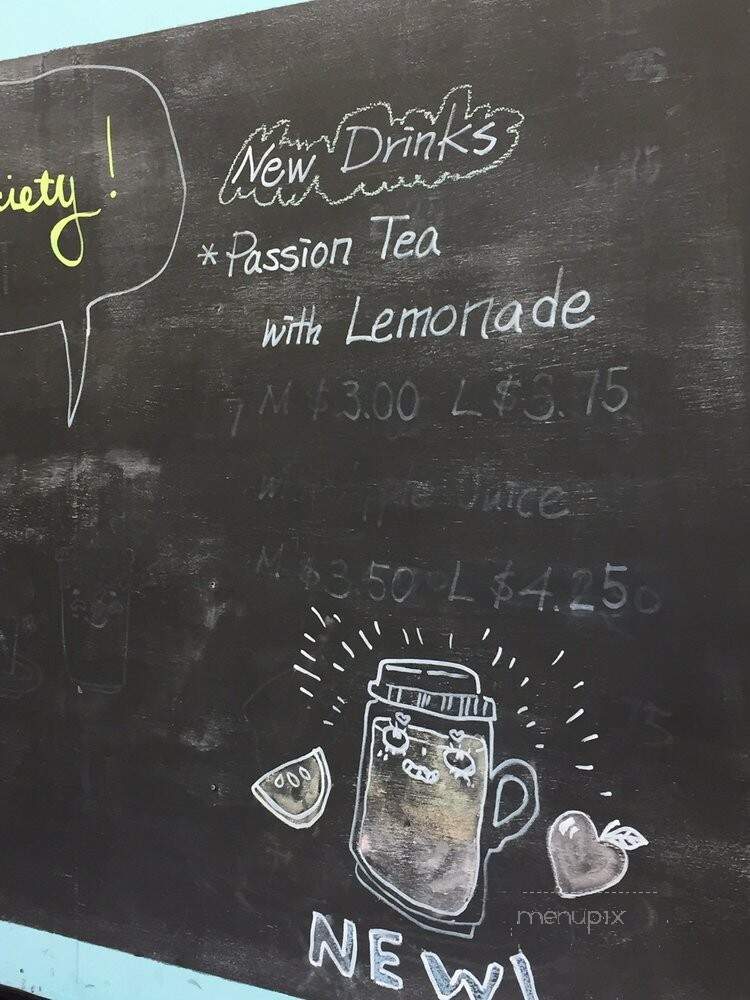 ciety!
New Drinks
*Passion Tea
with Lemonade
M $3.00 L $3.75
Apple Juice
M $3.50 L $4.25
NEW!
menupix